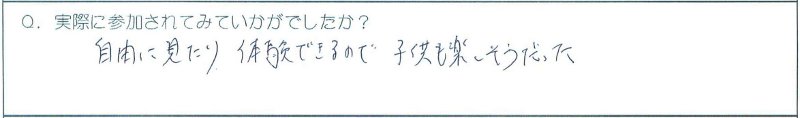 Q. 実際に参加されてみていかがでしたか?
自由に見たり 体験できるので 子供も楽しそうだった